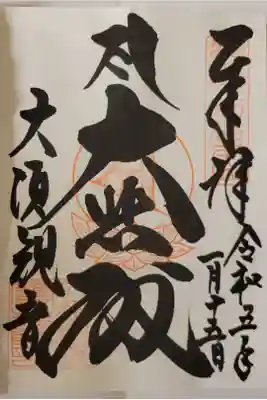 奉拝
令和五年
一月十五日
大悲殿
大須観音